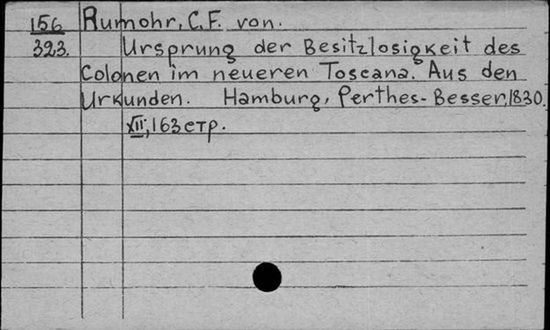 156 Rumohr, C.F. von.
323. Ursprung der Besitzlosigkeit des
Colonen im neueren Toscana. Aus den
Urkunden. Hamburg, Perthes-Besser, 1830.
XII, 163 стр.